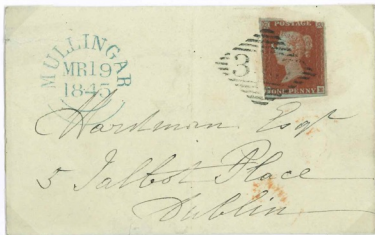 MULLINGAR
MR19
1845
POSTAGE
ONE PENNY
Hardman Esqr
5 Talbot Place
Dublin